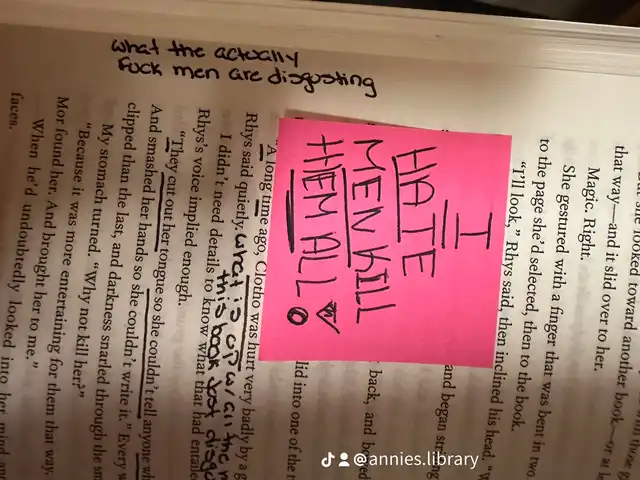 what the actually
fuck men are disgusting
she looked toward another book—or at
that way—and it slid over to her.
Magic. Right.
She gestured with a finger that was bent in two
to the page she'd selected, then to the book.
"I'll look," Rhys said, then inclined his head.
and began
back, and
into one of the
I
HATE
MEN KILL
THEM ALL
"A long time ago, Clotho was hurt very badly by a
Rhys said quietly.
what is up w/ all the
this book just
I didn't need details to know what that had
Rhys's voice implied enough.
"They cut out her tongue so she couldn't tell anyone
And smashed her hands so she couldn't write it." Every
clipped than the last, and darkness snarled through the
My stomach turned. "Why not kill her?"
"Because it was more entertaining for them that way.
Mor found her. And brought her to me."
When he'd undoubtedly looked into her mind and
faces.
@annies.library